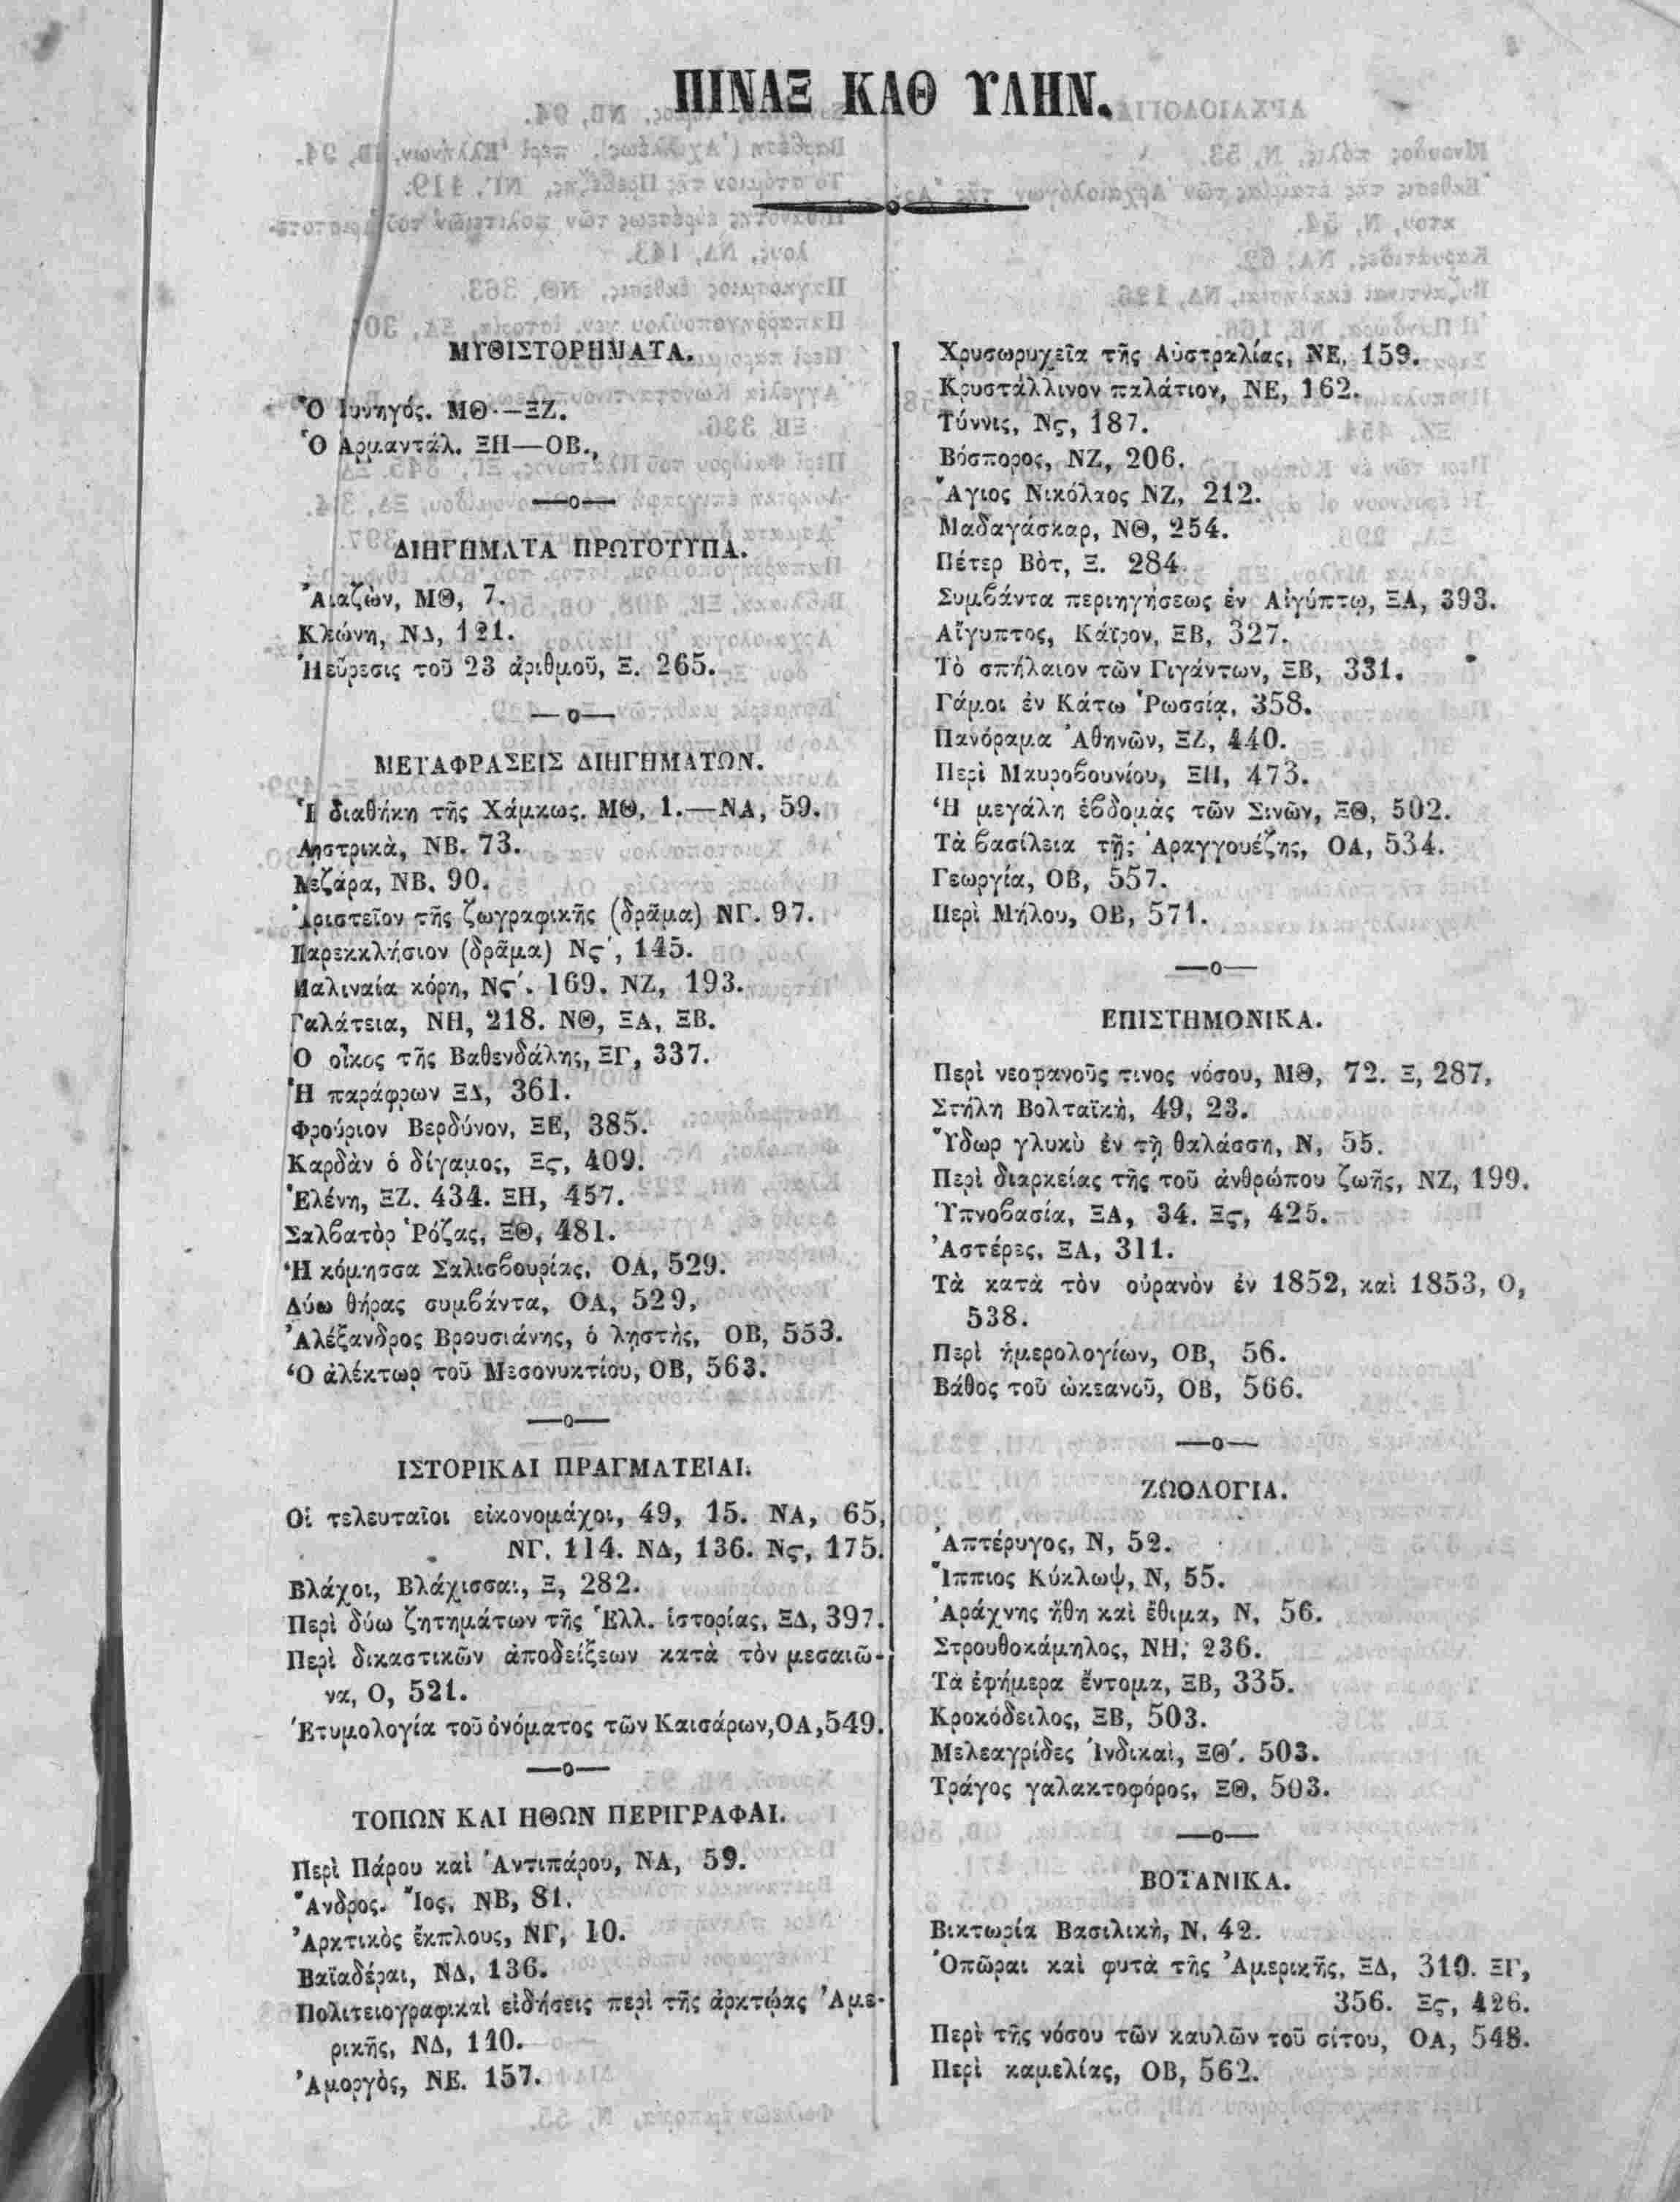 ΠΙΝΑΞ ΚΑΘ ΥΛΗΝ.
ΜΥΘΙΣΤΟΡΗΜΑΤΑ.
Ὁ Κυνηγός. ΜΘ.—ΞΖ.
Ὁ Ἁρμαντάλ. ΞΗ—ΟΒ.,
ΔΙΗΓΗΜΑΤΑ ΠΡΩΤΟΤΥΠΑ.
Ἀϊαζὼν, ΜΘ, 7.
Κλεώνη, ΝΔ, 121.
Ἡ εὕρεσις τοῦ 23 ἀριθμοῦ, Ξ. 265.
ΜΕΤΑΦΡΑΣΕΙΣ ΔΙΗΓΗΜΑΤΩΝ.
Ἡ διαθήκη τῆς Χάμκως. ΜΘ, 1.—ΝΑ, 59.
Λῃστρικὰ, ΝΒ. 73.
Νεζάρα, ΝΒ. 90.
Ἀριστεῖον τῆς ζωγραφικῆς (δρᾶμα) ΝΓ. 97.
Παρεκκλήσιον (δρᾶμα) Νϛʹ, 145.
Μαλιναία κόρη, Νϛʹ. 169. ΝΖ, 193.
Γαλάτεια, ΝΗ, 218. ΝΘ, ΞΑ, ΞΒ.
Ὁ οἶκος τῆς Βαθενδάλης, ΞΓ, 337.
Ἡ παράφρων ΞΔ, 361.
Φρούριον Βερδύνον, ΞΕ, 385.
Καρδὰν ὁ δίγαμος, Ξϛ, 409.
Ἑλένη, ΞΖ. 434. ΞΗ, 457.
Σαλβατὸρ Ῥόζας, ΞΘ, 481.
Ἡ κόμησσα Σαλισβουρίας, ΟΑ, 529.
Δύω θήρας συμβάντα, ΟΑ, 529,
Ἀλέξανδρος Βρουσιάνης, ὁ λῃστὴς, ΟΒ, 553.
Ὁ ἀλέκτωρ τοῦ Μεσονυκτίου, ΟΒ, 563.
ΙΣΤΟΡΙΚΑΙ ΠΡΑΓΜΑΤΕΙΑΙ.
Οἱ τελευταῖοι εἰκονομάχοι, 49, 15. ΝΑ, 65,
ΝΓ. 114. ΝΔ, 136. Νϛ, 175.
Βλάχοι, Βλάχισσαι, Ξ, 282.
Περὶ δύω ζητημάτων τῆς Ἑλλ. ἱστορίας, ΞΔ, 397.
Περὶ δικαστικῶν ἀποδείξεων κατὰ τὸν μεσαιῶ-
να, Ο, 521.
Ἐτυμολογία τοῦ ὀνόματος τῶν Καισάρων, ΟΑ, 549.
ΤΟΠΩΝ ΚΑΙ ΗΘΩΝ ΠΕΡΙΓΡΑΦΑΙ.
Περὶ Πάρου καὶ Ἀντιπάρου, ΝΑ, 59.
Ἄνδρος. Ἴος, ΝΒ, 81.
Ἀρκτικὸς ἔκπλους, ΝΓ, 10.
Βαϊαδέραι, ΝΔ, 136.
Πολιτειογραφικαὶ εἰδήσεις περὶ τῆς ἀρκτώας Ἀμε-
ρικῆς, ΝΔ, 140.
Ἀμοργὸς, ΝΕ. 157.
Χρυσωρυχεῖα τῆς Αὐστραλίας, ΝΕ, 159.
Κρυστάλλινον παλάτιον, ΝΕ, 162.
Τύννις, Νϛ, 187.
Βόσπορος, ΝΖ, 206.
Ἅγιος Νικόλαος ΝΖ, 212.
Μαδαγάσκαρ, ΝΘ, 254.
Πέτερ Βὸτ, Ξ. 284.
Συμβάντα περιηγήσεως ἐν Αἰγύπτῳ, ΞΑ, 393.
Αἴγυπτος, Κάϊρον, ΞΒ, 327.
Τὸ σπήλαιον τῶν Γιγάντων, ΞΒ, 331.
Γάμοι ἐν Κάτω Ῥωσσίᾳ, 358.
Πανόραμα Ἀθηνῶν, ΞΖ, 440.
Περὶ Μαυροβουνίου, ΞΗ, 473.
Ἡ μεγάλη ἑβδομὰς τῶν Σινῶν, ΞΘ, 502.
Τὰ βασίλεια τῆς Ἀραγγουέζης, ΟΑ, 534.
Γεωργία, ΟΒ, 557.
Περὶ Μήλου, ΟΒ, 571.
ΕΠΙΣΤΗΜΟΝΙΚΑ.
Περὶ νεοφανοῦς τινος νόσου, ΜΘ, 72. Ξ, 287,
Στήλη Βολταϊκὴ, 49, 23.
Ὕδωρ γλυκὺ ἐν τῇ θαλάσσῃ, Ν, 55.
Περὶ διαρκείας τῆς τοῦ ἀνθρώπου ζωῆς, ΝΖ, 199.
Ὑπνοβασία, ΞΑ, 34. Ξϛ, 425.
Ἀστέρες, ΞΑ, 311.
Τὰ κατὰ τὸν οὐρανὸν ἐν 1852, καὶ 1853, Ο,
538.
Περὶ ἡμερολογίων, ΟΒ, 56.
Βάθος τοῦ ὠκεανοῦ, ΟΒ, 566.
ΖΩΟΛΟΓΙΑ.
Ἀπτέρυγος, Ν, 52.
Ἵππιος Κύκλωψ, Ν, 55.
Ἀράχνης ἤθη καὶ ἔθιμα, Ν, 56.
Στρουθοκάμηλος, ΝΗ, 236.
Τὰ ἐφήμερα ἔντομα, ΞΒ, 335.
Κροκόδειλος, ΞΒ, 503.
Μελεαγρίδες Ἰνδικαὶ, ΞΘʹ. 503.
Τράγος γαλακτοφόρος, ΞΘ, 503.
ΒΟΤΑΝΙΚΑ.
Βικτωρία Βασιλικὴ, Ν, 42.
Ὀπῶραι καὶ φυτὰ τῆς Ἀμερικῆς, ΞΔ, 310. ΞΓ,
356. Ξϛ, 426.
Περὶ τῆς νόσου τῶν καυλῶν τοῦ σίτου, ΟΑ, 548.
Περὶ καμελίας, ΟΒ, 562.